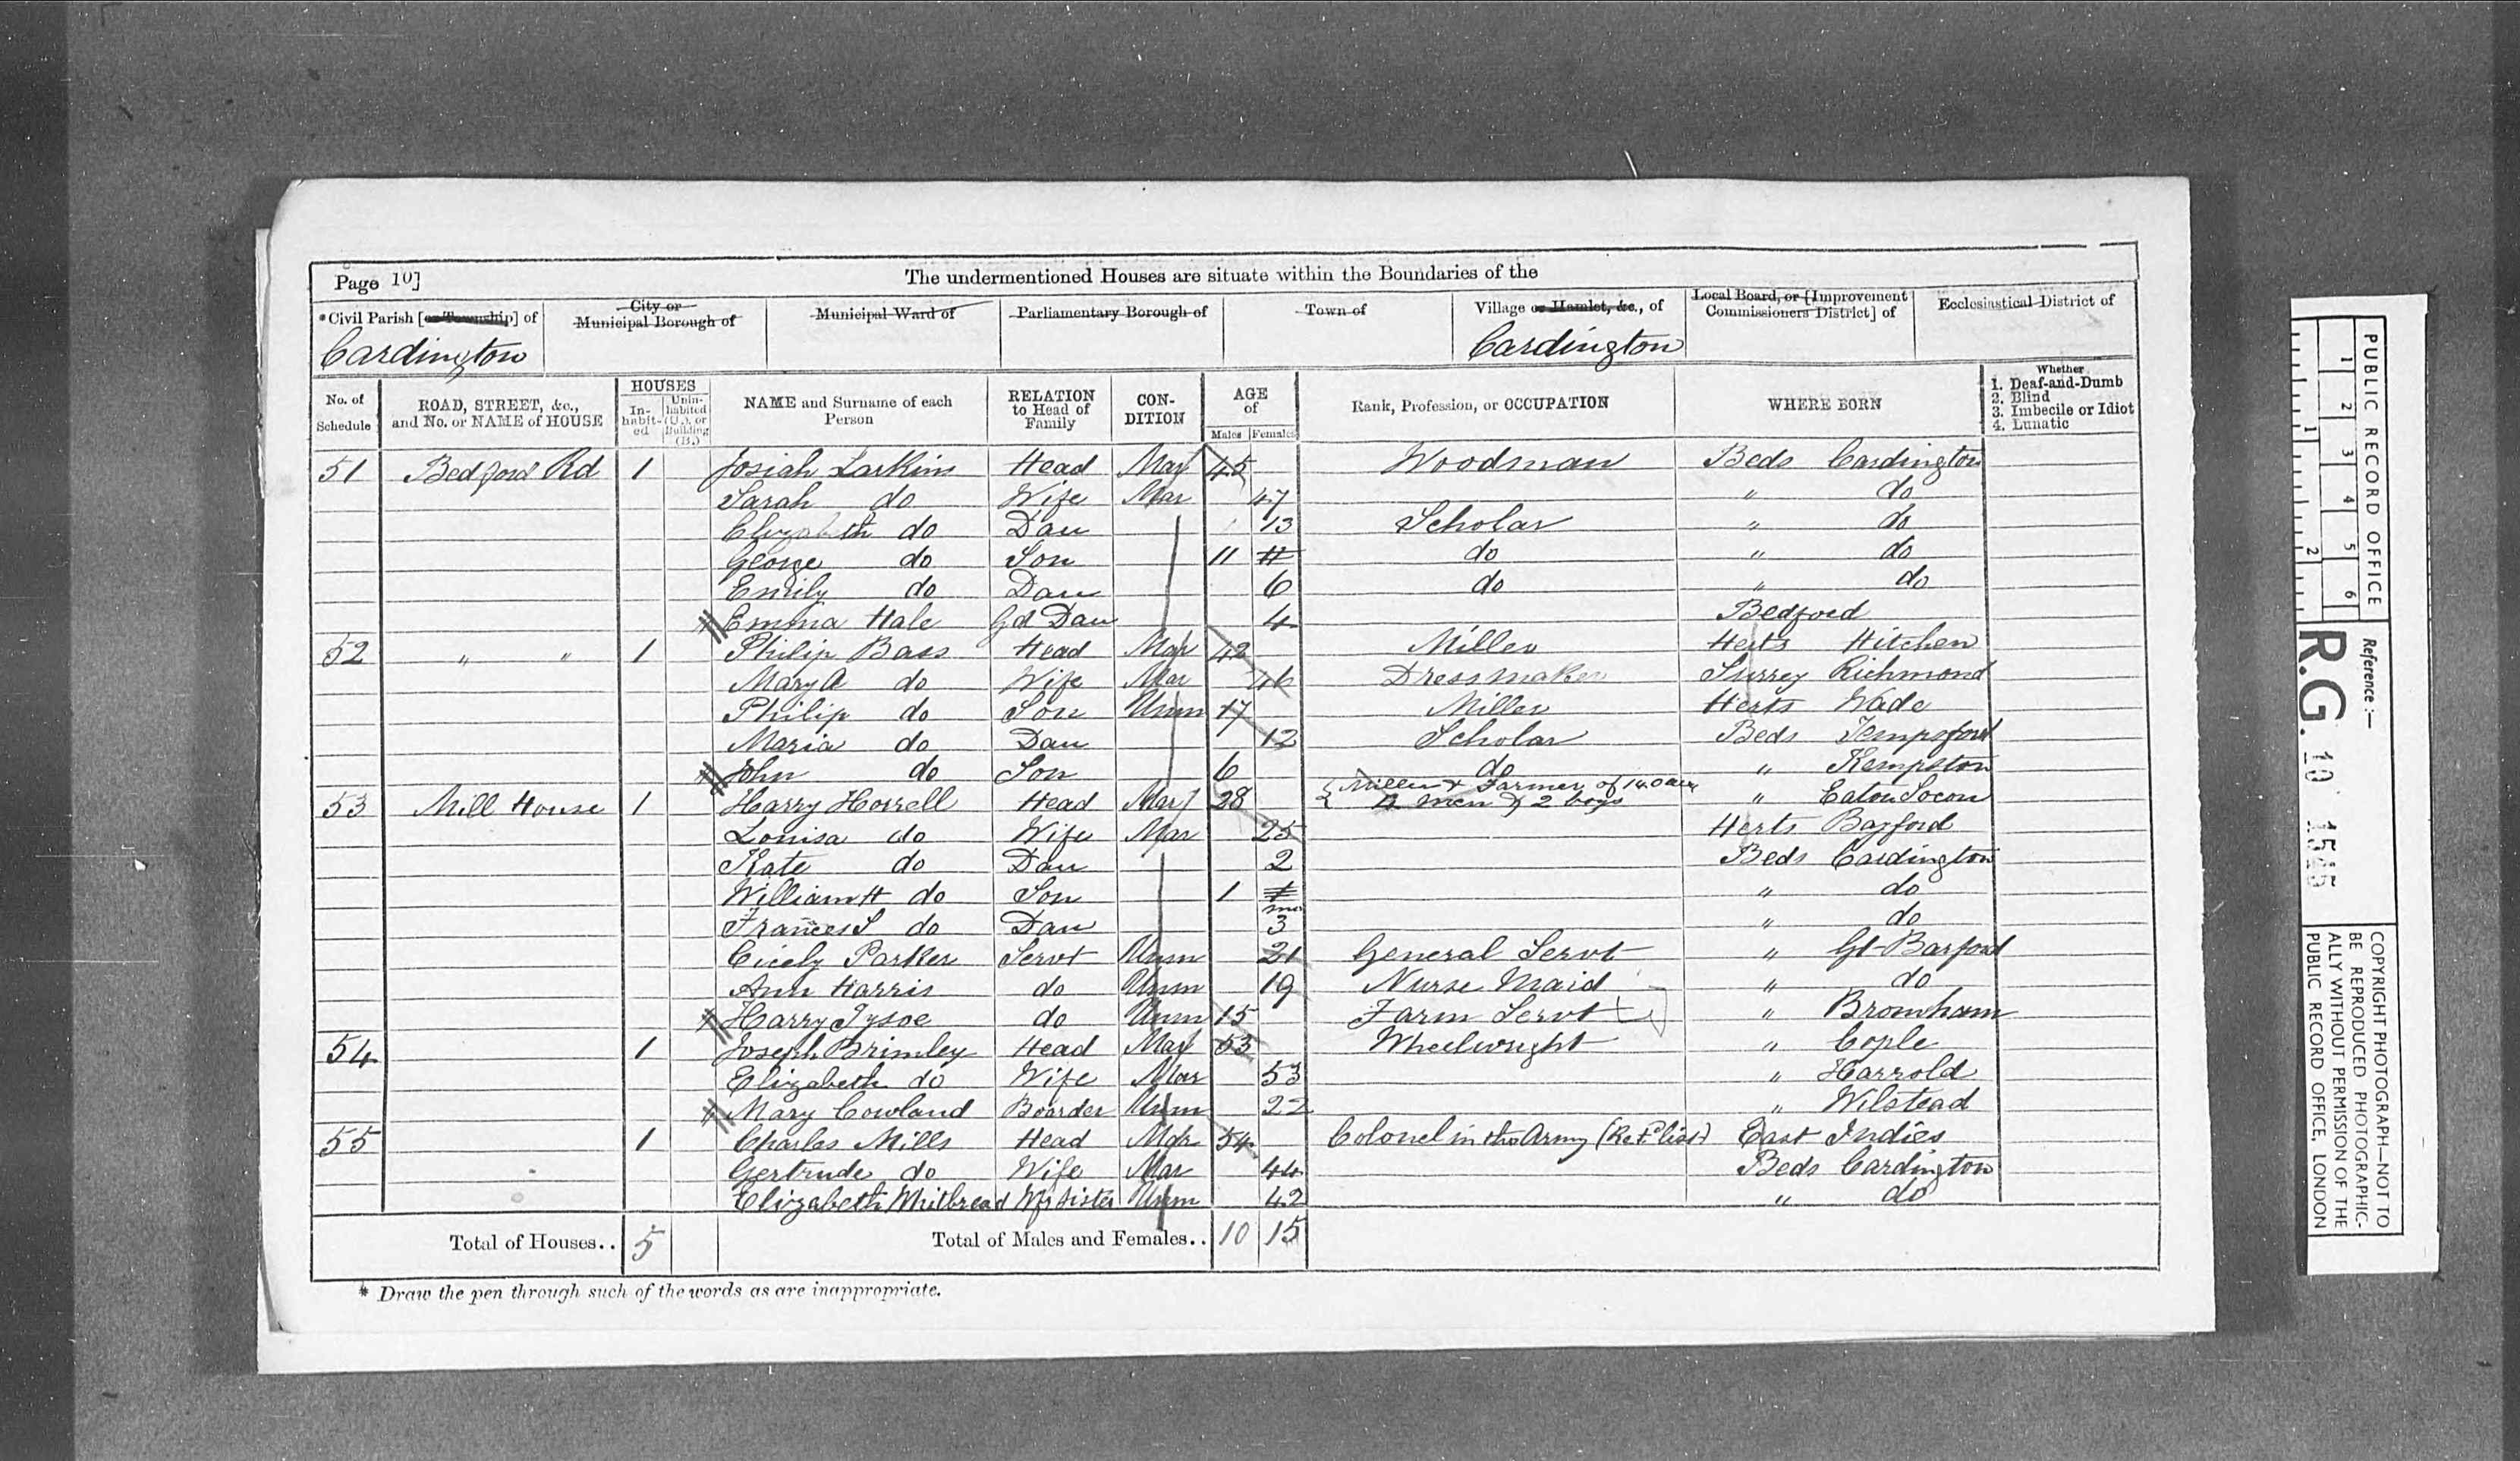 Page 10] The undermentioned Houses are situate within the Boundaries of the
*Civil Parish [or Township] of City or Municipal Borough of Municipal Ward of Parliamentary Borough of Town of Village or Hamlet, &c., of Local Board, or [Improvement Commissioners District] of Ecclesiastical District of
Cardington Cardington
No. of Schedule ROAD, STREET, &c., and No. or NAME of HOUSE HOUSES Inhabited Uninhabited (U.), or Building (B.) NAME and Surname of each Person RELATION to Head of Family CONDITION AGE of Males Females Rank, Profession, or OCCUPATION WHERE BORN Whether 1. Deaf-and-Dumb 2. Blind 3. Imbecile or Idiot 4. Lunatic
51 Bedford Rd 1 Josiah Larkins Head Mar 45 Woodman Beds Cardington
Sarah do Wife Mar 47 " do
Elizabeth do Dau 13 Scholar " do
George do Son 11 11 do " do
Emily do Dau 6 do " do
Emma Hale Gd Dau 4 Bedford
52 " " 1 Philip Bass Head Mar 42 Miller Herts Hitchen
Mary A do Wife Mar 46 Dressmaker Surrey Richmond
Philip do Son Unm 17 Miller Herts Wade
Maria do Dau 12 Scholar Beds Tempsford
John do Son 6 do " Kempston
53 Mill House 1 Harry Horrell Head Mar 28 { Miller & Farmer of 140 acr men & 2 boys " Eaton Socon
Louisa do Wife Mar 25 Herts Barford
Kate do Dau 2 Beds Cardington
William H do Son 1 1 " do
Frances S do Dau mo 3 " do
Cicely Parker Servt Unm 21 General Servt " Gt Barford
Ann Harris do Unm 19 Nurse Maid " do
Harry Tysoe do Unm 15 Farm Servt " Bromham
54 1 Joseph Brimley Head Mar 53 Wheelwright " Cople
Elizabeth do Wife Mar 53 " Harrold
Mary Cowland Boarder Unm 22 " Wilstead
55 1 Charles Mills Head Mar 54 Colonel in the Army (Ret list) East Indies
Gertrude do Wife Mar 44 Beds Cardington
Elizabeth Whitbread Wfs sister Unm 42 " do
Total of Houses.. 5 Total of Males and Females.. 10 15
* Draw the pen through such of the words as are inappropriate.
1 2 3 4 5 6
1 2
PUBLIC RECORD OFFICE
Reference :—
R.G. 10 1545
COPYRIGHT PHOTOGRAPH—NOT TO
BE REPRODUCED PHOTOGRAPHIC-
ALLY WITHOUT PERMISSION OF THE
PUBLIC RECORD OFFICE, LONDON